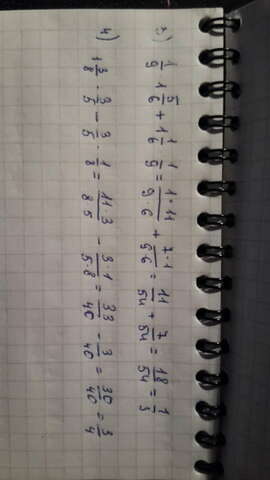 3)
1/9 · 1 5/6 + 1 1/6 · 1/9 = 1·11/9·6 + 7·1/9·6 = 11/54 + 7/54 = 18/54 = 1/3
4)
1 3/8 · 3/5 - 3/5 · 1/8 = 11·3/8·5 - 3·1/5·8 = 33/40 - 3/40 = 30/40 = 3/4